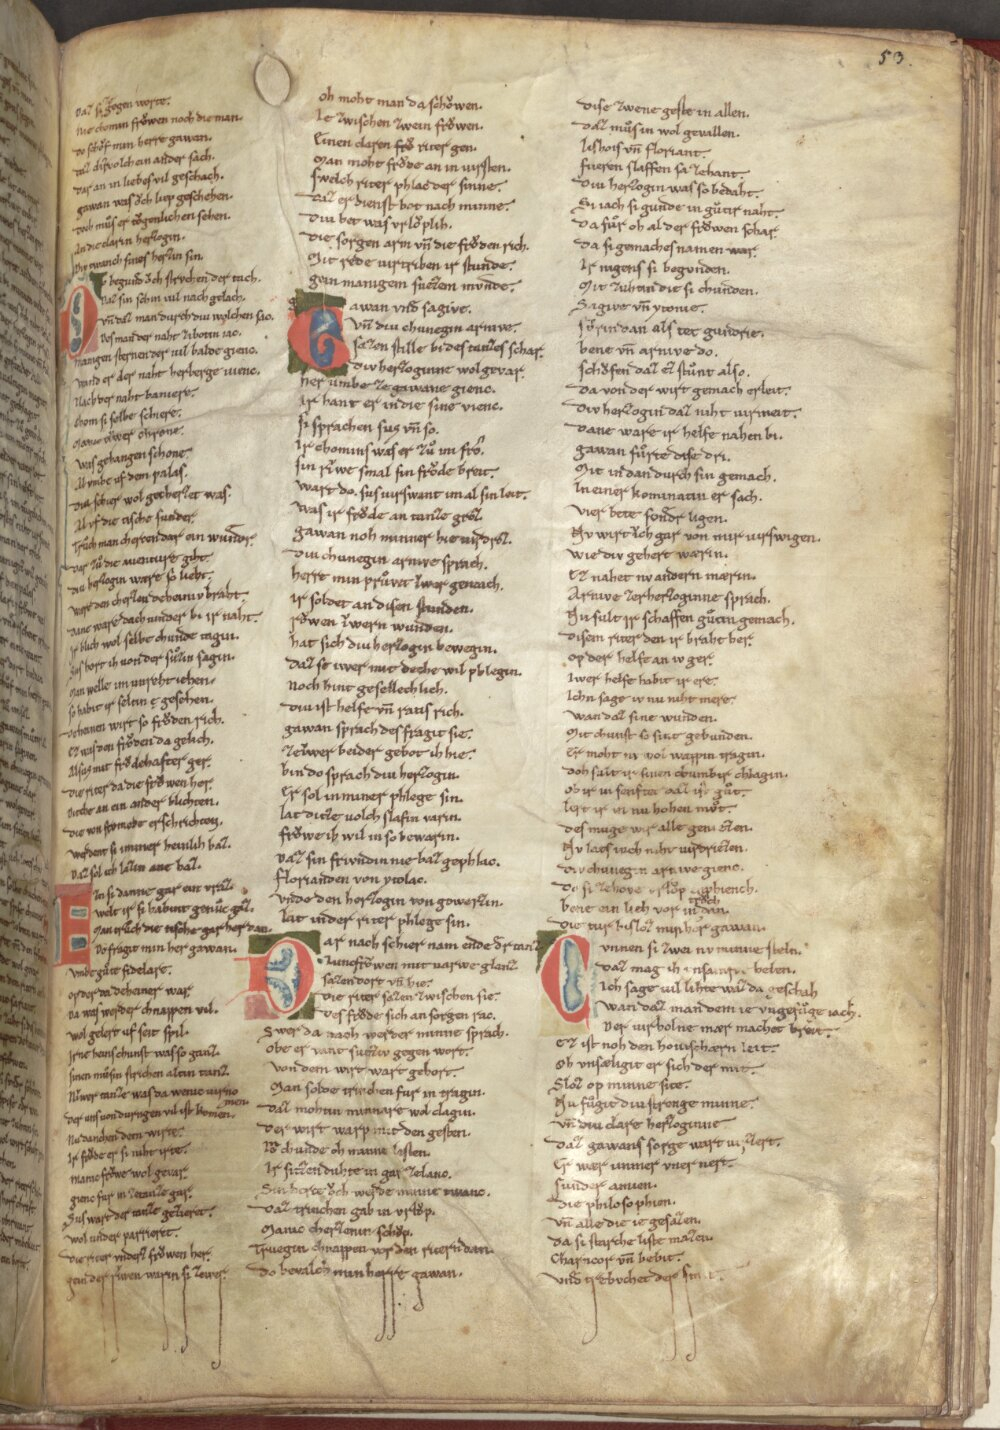 53.
Daz si gegen worte.
Nie chomin fröwen noch die man.
do schöf min herre gawan.
daz disvolch ein ander sach.
dar an in liebes vil geschach.
gawan was öch liep geschehen.
doch můs er tögenlichen sehen.
An die clarin herzogin.
Div twanch sines herzin sin.
begund öch strvchen der tach.
Daz sin schin vil nach gelach.
vn̄ daz man durch div wolchen sac.
Des man der naht ze botin iac.
manigen sternen der vil balde gienc.
wand er der naht herberge vienc.
Nach der naht baniere.
chom si selbe schiere.
Manic tiwer chrone.
was gehangen schone.
Al vmbe vf dem palas.
Div schier wol gecherzet was.
Al vf die tische sunder.
Trůch man cherzen dar ein wunder.
dar zů div auenture giht.
div herzogin were so lieht.
were der cherzen deheiniv braht.
dane ware doch ninder bi ir naht.
ir blich wol selbe chunde tagin.
sus hort ih von der sůzin sagin.
Man welle im vnreht iehen.
so habit ir selten ê gesehen.
deheinen wirt so fröden rich.
Ez was den fröden da gelich.
Alsus mit frödehafter ger.
die riter da die fröwen her.
Dicche an ein ander blichten.
die von frömede erschrichten.
werdent si immer heinlich baz.
daz sol ich lazin ane haz.
Ezn si danne gar ein vraz.
welt ir si habint genůc gaz.
Man trůch die tische gar her dan.
Do fragit min her gawan.
vmbe gůte fidelære.
op der da deheiner war.
Da was werder chnappen vil.
wol gelert vf seit spil.
irne heins chunst was so ganz.
sinen můsin strichen alten tanz.
Niwer tanze was da wenic virno
men.
der uns von durngen vil ist komen.
Nu danchen dem wirte.
ir fröde er si niht irte.
manic fröwe wol gevar.
gienc fur in ze tanze gar.
sus wart der tanz gezieret.
wol under parrieret.
die riter vnderz fröwen her.
gein der riwen warin si ze wer.
oh moht man da schöwen.
Ie zwischen zwein fröwen.
Einen claren frö riter gen.
Man moht fröde an in virsten.
swelch riter phlac der sinne.
daz er dienst bot nach minne.
Div bet was vrlöplih.
die sorgen arm vn̄ die fröden rich.
Mit rede virtriben ir stunde.
gein manigem sůzzem mvnde.
Gawan vnd̄ sagive.
vn̄ div chunegin arnive.
sazen stille bi des tanzes schar.
div herzoginne wol gevar
her umbe ze gawane gienc.
ir hant er in die sine vienc.
si sprachen sus vn̄ so.
ir chomins was er zů im frö.
sin riwe smal sin fröde breit.
wart do. sus virswant im al sin leit.
was ir fröde an tanze groz.
gawan noh minner hie virdroz.
Div chunegin arnive sprach.
herre nun průvet iwer gemach.
ir soldet an disen stunden.
růwen zwern wunden.
hat sich div herzogin bewegin.
daz se iwer mit deche wil phlegin.
Noch hint geselleclich.
div ist helfe vn̄ ratis rich.
gawan sprach des fragit sie.
ze iwer beider gebot ih hie.
bin do sprach div herzogin.
Er sol in miner phlege sin.
lat ditze volch slafin varin.
fröwe ih wil in so bewarin.
daz sin friwndin nie baz gephlac.
florianden von ytolac.
vnde den herzogin von gowerzin.
lat in der riter phlege sin.
Dar nach schier nam ende d̾ tanz
Juncfröwen mit varwe glanz
sazen dort vn̄ hie.
die riter sazen zwischen sie.
des fröde sich an sorgen rac.
Swer da nach werder minne sprach.
obe er vant sůziv gegen wort.
von dem wirt wart gehort.
Man solde trinchen fur in tragin.
daz mohtin minnære wol clagin.
der wirt warp mit den gesten.
in chunde oh minne lesten.
ir sitzen duhte in gar ze lanc.
sin herze öch werde minne twanc.
daz trinchen gab in vrlöp.
Manic cherzenin schöp.
Truegin chnappen vor den ritern dan.
do bevalch min herre gawan.
dise zwene geste in allen.
daz můs in wol gevallen.
lishois vn̄ floriant.
fueren slaffen sa zehant.
div herzogin was so bedaht.
Si iach si gunde in gůter naht.
Da fůr oh al der fröwen schar
da si gemaches namen war.
ir nigens si begvnden.
Mit zuht an die si chunden.
Sagive vn̄ ytonie.
fůrin dan als tet gundrie.
bene vn̄ arnive do.
schöfen daz ez stůnt also.
Da von der wirt gemach erleit.
Div herzogin daz niht virmeit.
Dane ware ir helfe nahen bi.
gawan fůrte dise dri.
Mit in dan durch sin gemach.
In einer kominatin er sach.
vier bete sond̾r ligen.
Nv wirt ůch gar von mir virswigen.
wie div gehert wærin.
Ez nahet nv andern mærin.
Arnive ze herzoginne sprach.
Nv sult ir schaffen gůtin gemach.
disem riter den ir braht her.
op der helfe an iv ger.
iwer helfe habit ir ere.
ichn sage iv nu niht mere.
wan daz sine wunden.
Mit chunst so sint gebunden.
Er moht nv wol wappin tragin.
doh sult ir sinen chumber chlagin.
ob ir in senftet daz ist gůt.
lert ir in nu hohen můt.
des muge wir alle geniezen.
Nv lats iveh niht virdriezen.
div chunegin arnive gienc.
Do si ze hove vrlöp enphiench.
bene ein lieh vor in
trůch
dan.
die tur bisloz min her gawan.
Cvnnen si zwei nv minne steln.
daz mag ih vnsanfte helen.
Ich sage vil lihte waz da geschah
wan daz man dem ie vngefůge iach.
Der virholne mær machet breit.
Ez ist noh den hovischærn leit.
oh vnsæligit er sich der mit.
Sloz op minne site.
Nu fůgit div strenge minne.
vn̄ div clare herzoginne
daz gawans sorge wart virzert.
Er wær immer vner nert.
sunder amien.
die philosophien.
vn̄ alle die ie gesazen.
da si starche liste mazen.
Chancor vn̄ bebit.
vnd̄ trebvchet der smit.